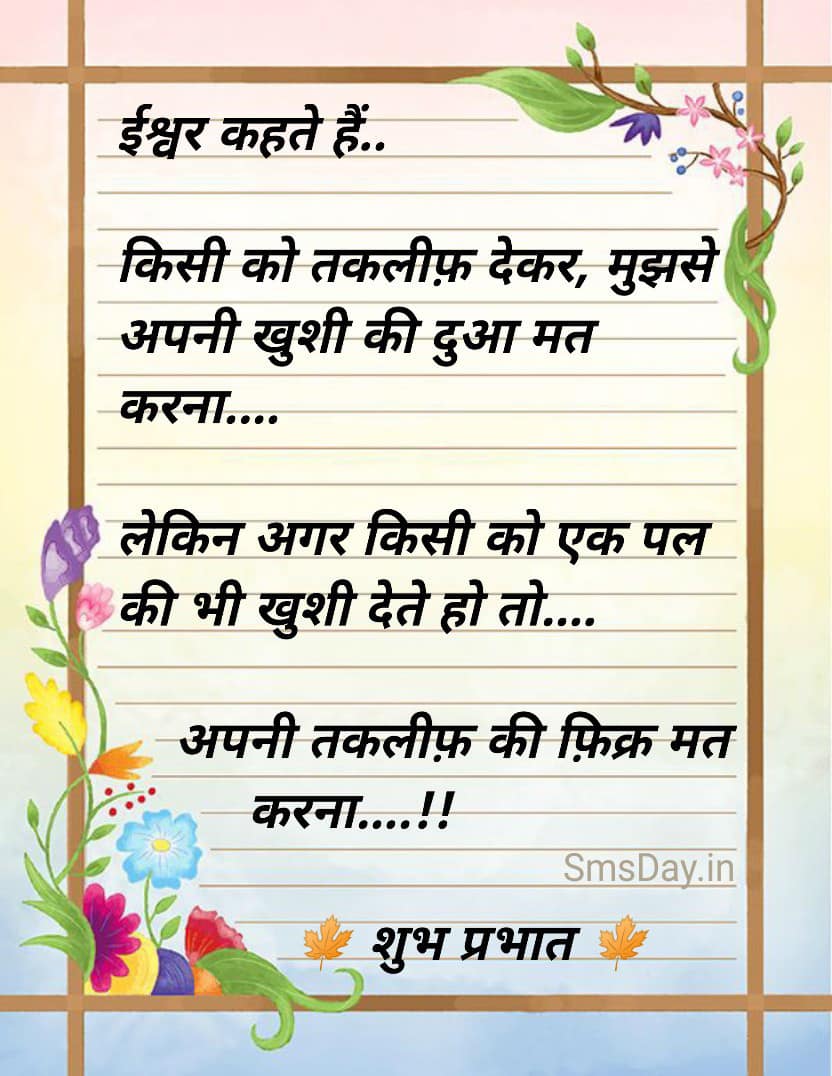 ईश्वर कहते हैं..
किसी को तकलीफ़ देकर, मुझसे
अपनी खुशी की दुआ मत
करना....
लेकिन अगर किसी को एक पल
की भी खुशी देते हो तो....
अपनी तकलीफ़ की फ़िक्र मत
करना....!!
SmsDay.in
🍁 शुभ प्रभात 🍁